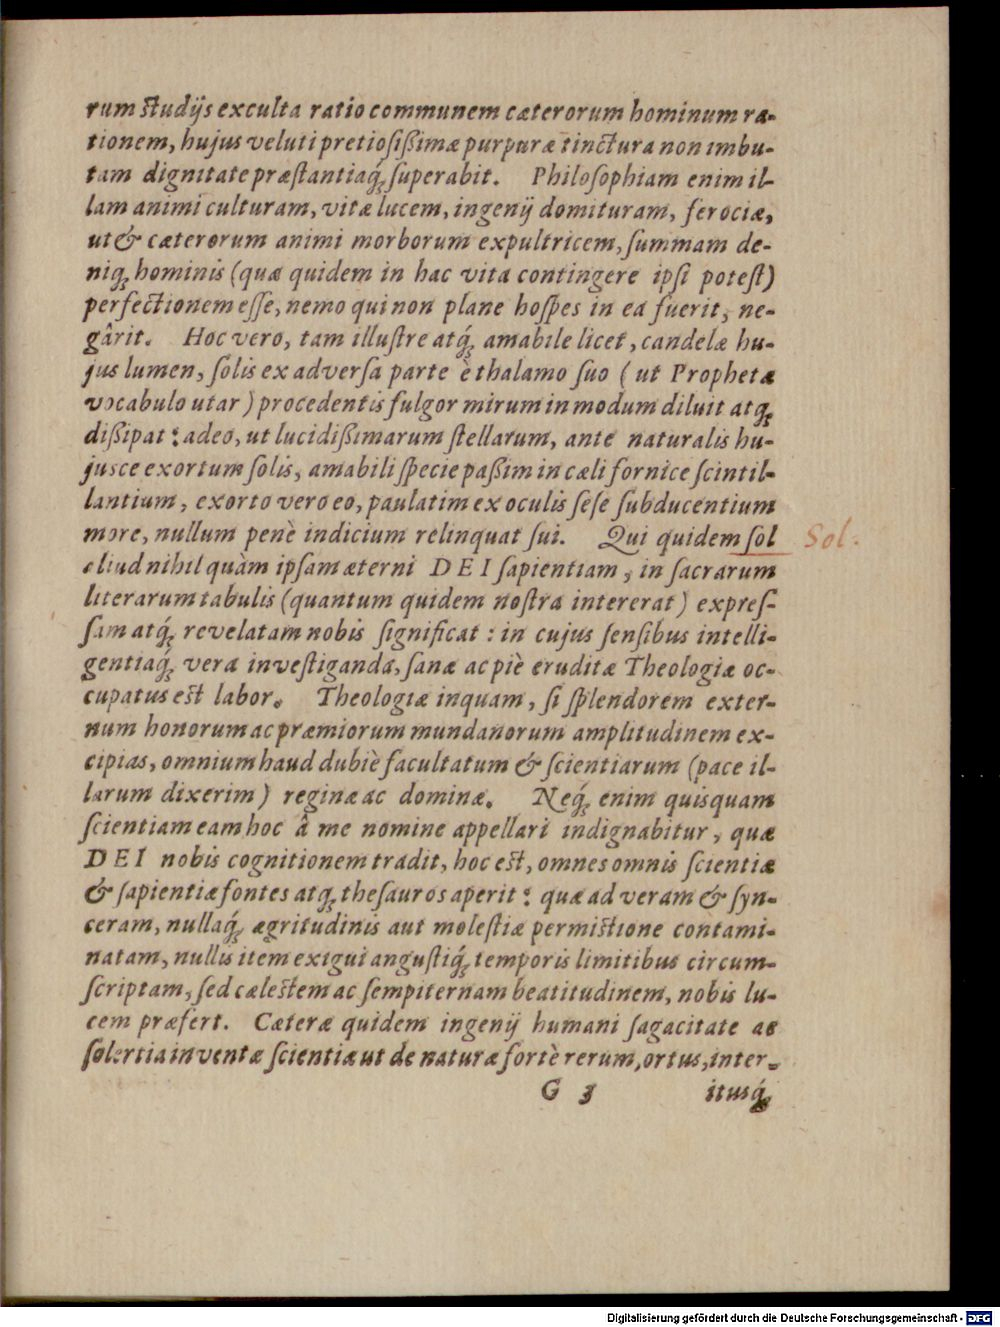 rum ſtudijs exculta ratio communem cæterorum hominum ra-
tionem, hujus veluti pretioſiſſimæ purpuræ tinctura non imbu-
tam dignitate præſtantiaq́; ſuperabit. Philoſophiam enim il-
lam animi culturam, vitæ lucem, ingenij domituram, ferociæ,
ut & cæterorum animi morborum expultricem, ſummam de-
niq; hominis (quæ quidem in hac vita contingere ipſi poteſt)
perfectionem eſſe, nemo qui non plane hoſpes in ea fuerit, ne-
gârit. Hoc vero, tam illuſtre atq́; amabile licet, candelæ hu-
jus lumen, ſolis ex adverſa parte è thalamo ſuo (ut Prophetæ
vocabulo utar) procedentis fulgor mirum in modum diluit atq;
diſſipat: adeo, ut lucidiſſimarum ſtellarum, ante naturalis hu-
jusce exortum ſolis, amabili ſpecie paſſim in cæli fornice ſcintil-
lantium, exorto vero eo, paulatim ex oculis ſeſe ſubducentium
more, nullum penè indicium relinquat ſui. Qui quidem ſol
aliud nihil quàm ipſam æterni DEI ſapientiam, in ſacrarum
literarum tabulis (quantum quidem noſtra intererat) expreſ-
ſam atq́; revelatam nobis ſignificat: in cujus ſenſibus intelli-
gentiaq́; vera inveſtiganda, ſanæ ac piè eruditæ Theologiæ oc-
cupatus est labor. Theologiæ inquam, ſi ſplendorem exter-
num honorum ac præmiorum mundanorum amplitudinem ex-
cipias, omnium haud dubiè facultatum & ſcientiarum (pace il-
larum dixerim) reginæ ac dominæ. Neq́; enim quisquam
ſcientiam eam hoc â me nomine appellari indignabitur, quæ
DEI nobis cognitionem tradit, hoc est, omnes omnis ſcientiæ
& ſapientiæ fontes atq; theſauros aperit: quæ ad veram & ſyn-
ceram, nullaq́; ægritudinis aut moleſtiæ permistione contami-
natam, nullis item exigui anguſtiq́; temporis limitibus circum-
ſcriptam, ſed cæleſtem ac ſempiternam beatitudinem, nobis lu-
cem præfert. Cæteræ quidem ingenij humani ſagacitate ac
ſolertia inventæ ſcientiæ ut de naturæ fortè rerum, ortus, inter-
G 3 itusq́;
Sol.
Digitalisierung gefördert durch die Deutsche Forschungsgemeinschaft - DFG